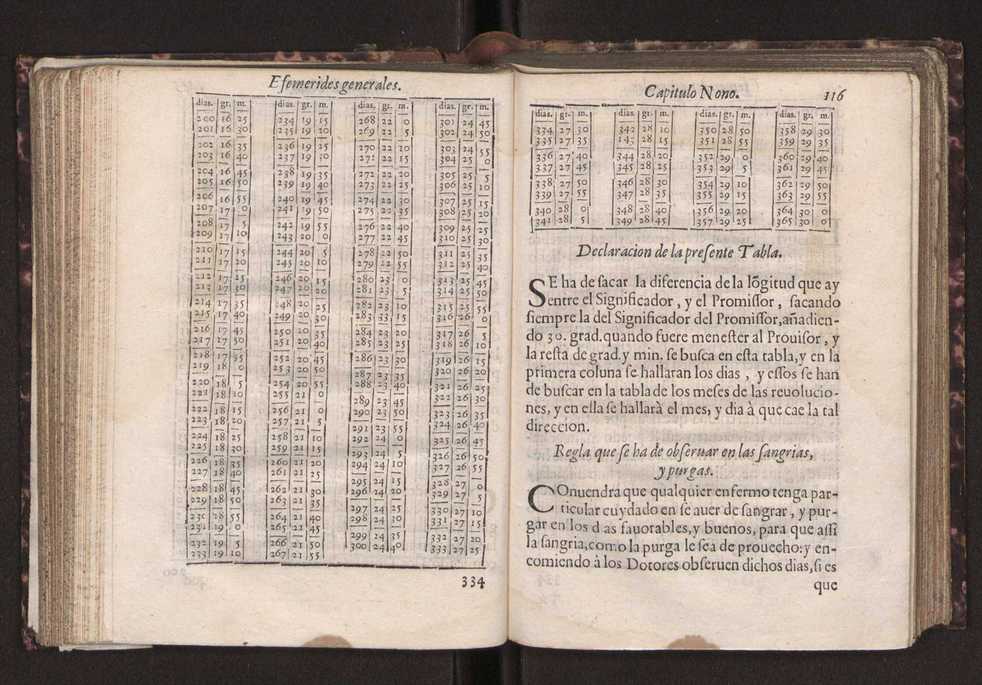 Efemerides generales.
dias. gr. m. dias. gr. m. dias. gr. m. dias. gr. m.
200 16 25 234 19 15 268 22 0 301 24 45
201 16 30 235 19 20 269 22 5 302 24 50
202 16 35 236 19 25 270 22 10 303 24 55
203 16 40 237 19 30 271 22 15 304 25 0
204 16 45 238 19 35 272 22 20 305 25 5
205 16 50 239 19 40 273 22 25 306 25 10
206 16 55 240 19 45 274 22 30 307 25 15
207 17 0 241 19 50 275 22 35 308 25 20
208 17 5 242 19 55 276 22 40 309 25 25
209 17 10 243 20 0 277 22 45 310 25 30
210 17 15 244 20 5 278 22 50 311 25 35
211 17 20 245 20 10 279 22 55 312 25 40
212 17 25 246 20 15 280 23 0 313 25 45
213 17 30 247 20 20 281 23 5 314 25 50
214 17 35 248 20 25 282 23 10 315 25 55
215 17 40 249 20 30 283 33 15 316 26 0
216 17 45 250 20 35 284 23 20 317 26 5
217 17 50 251 20 40 285 23 25 318 26 10
218 17 55 252 20 45 286 23 30 319 26 15
219 18 0 253 20 50 287 23 35 320 26 20
220 18 5 254 20 55 288 23 40 321 26 25
221 18 10 255 21 0 289 23 45 322 26 30
222 18 15 256 21 0 290 23 50 323 26 35
223 18 20 257 21 5 291 23 55 324 26 40
224 18 25 258 21 10 292 24 0 325 26 45
225 18 30 259 21 15 293 24 5 326 26 50
226 18 35 260 21 20 294 24 10 327 26 55
227 18 40 261 21 25 295 24 15 328 27 0
228 18 45 262 21 30 296 24 20 329 27 5
229 18 50 263 21 35 297 24 25 330 27 10
230 18 55 264 21 40 298 24 30 331 27 15
231 19 0 265 21 45 299 24 35 332 27 20
232 19 5 266 21 50 300 24 40 333 27 25
233 19 10 267 21 55
334
Capitulo Nono. 116
dias. gr. m. dias. gr. m. dias. gr. m. dias. gr. m.
334 27 30 342 28 10 350 28 50 358 29 30
335 27 35 143 28 15 351 28 55 359 29 35
336 27 40 344 28 20 352 29 0 360 29 40
337 27 45 345 28 25 353 29 5 361 29 45
338 27 50 346 28 30 354 29 10 362 29 50
339 27 55 347 28 35 355 29 15 363 29 55
340 28 0 348 28 40 356 29 20 364 30 0
341 28 5 349 28 45 357 29 25 365 30 0
Declaracion de la presente Tabla.
SE ha de sacar la diferencia de la lõgitud que ay
entre el Significador, y el Promissor, sacando
siempre la del Significador del Promissor, añadien-
do 30. grad. quando fuere menester al Prouisor, y
la resta de grad. y min. se busca en esta tabla, y en la
primera coluna se hallaran los dias, y essos se han
de buscar en la tabla de los meses de las reuolucio-
nes, y en ella se hallarà el mes, y dia à que cae la tal
direccion.
Regla que se ha de obseruar en las sangrias,
y purgas.
COnuendra que qualquier enfermo tenga par-
ticular cuydado en se auer de sangrar, y pur-
gar en los dias fauorables, y buenos, para que assi
la sangria, como la purga le sea de prouecho: y en-
comiendo à los Dotores obseruen dichos dias, si es
que